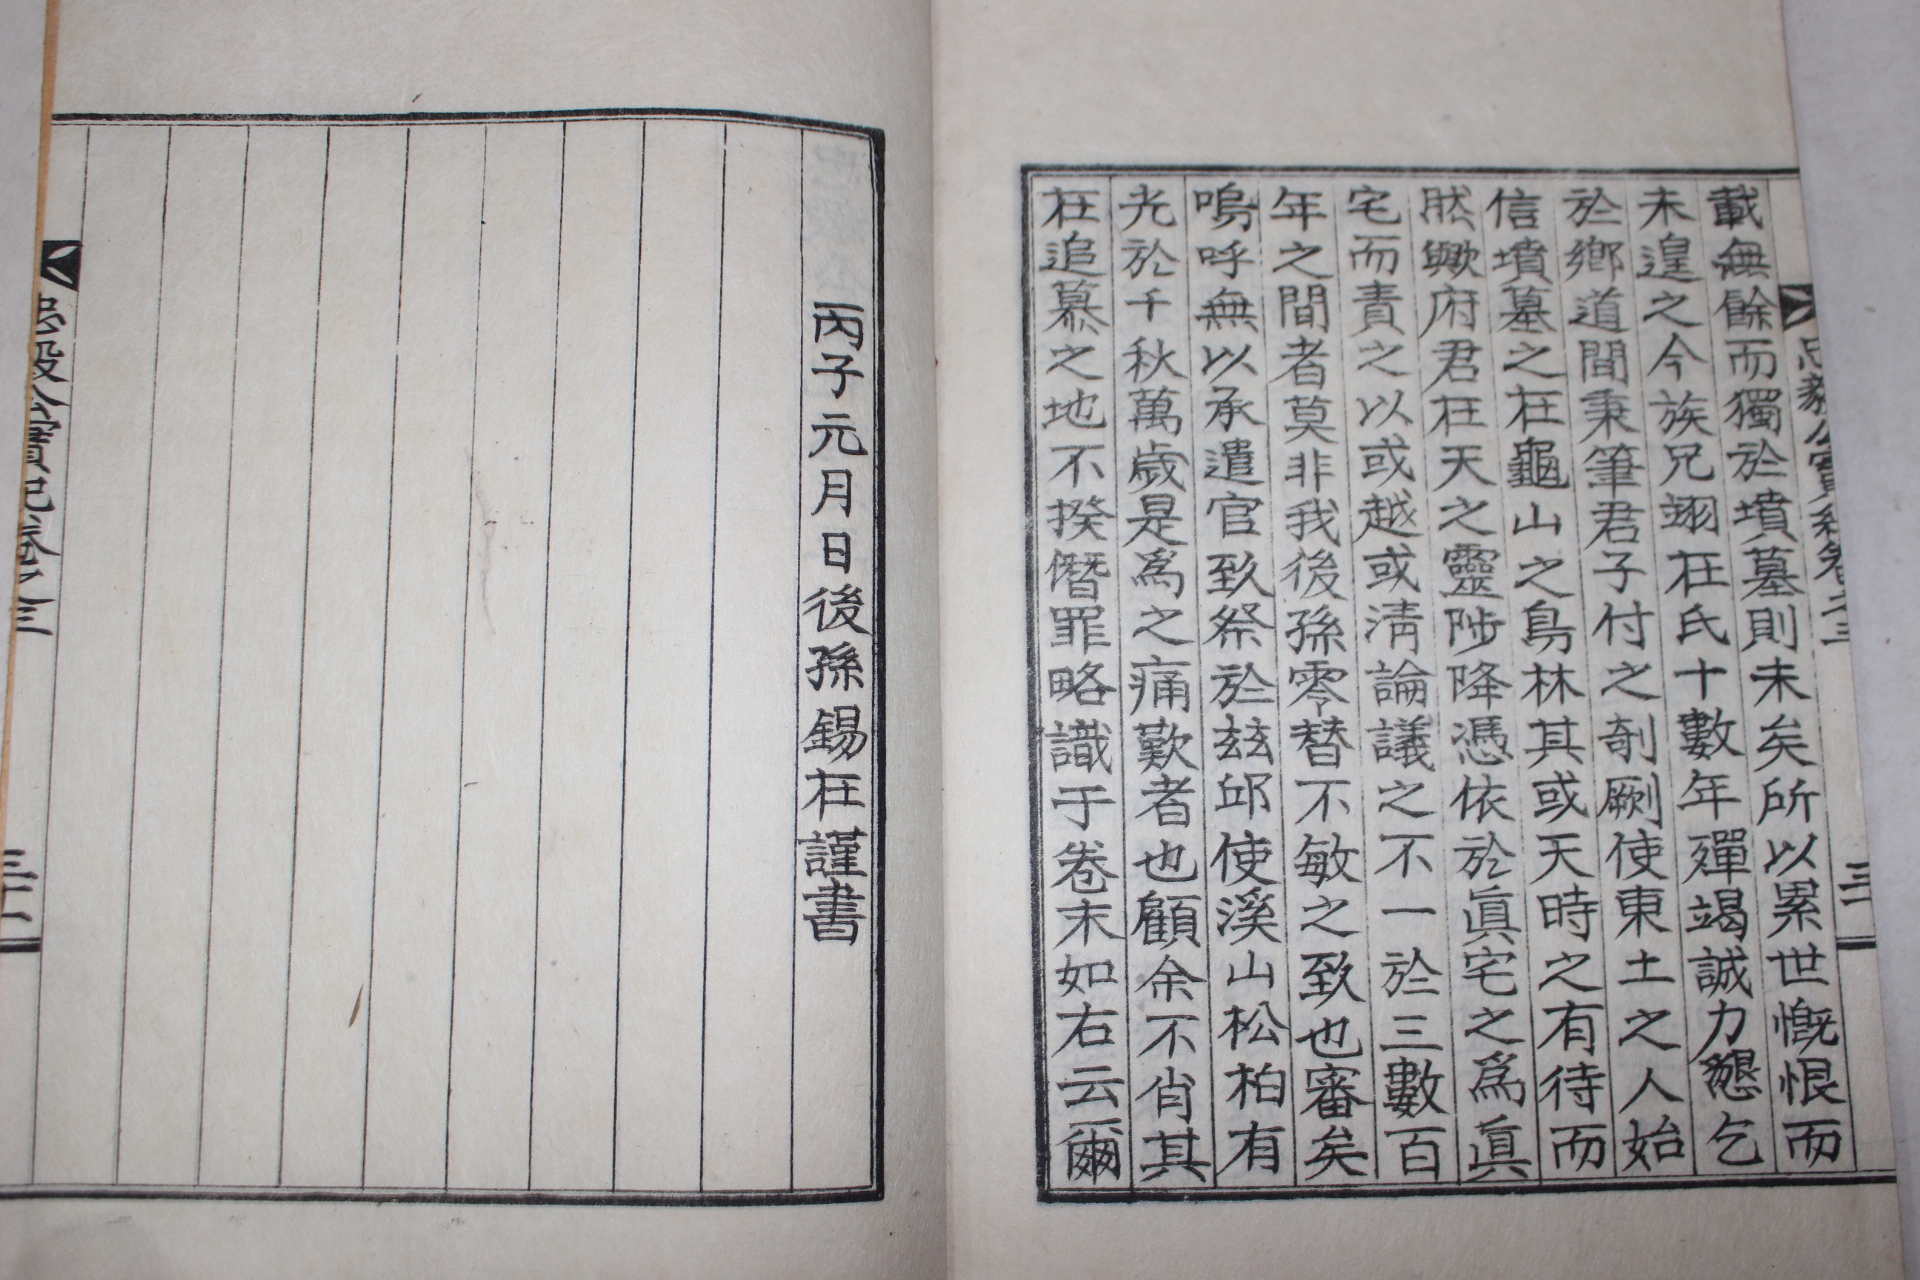 載無餘而獨於墳墓則未矣所以累世慨恨而
未遑之今族兄翊在氏十數年殫竭誠力懇乞
於鄉道間秉筆君子付之剞劂使東土之人始
信墳墓之在龜山之烏林其或天時之有待而
然歟府君在天之靈陟降憑依於眞宅之爲眞
宅而責之以或越或淸論議之不一於三數百
年之間者莫非我後孫零替不敏之致也審矣
嗚呼無以承遣官致祭於玆邱使溪山松柏有
光於千秋萬歲是爲之痛歎者也顧余不肖其
在追慕之地不揆僭罪略識于卷末如右云爾
忠毅公實紀卷之三
三一
丙子元月日後孫錫在謹書
忠毅公實紀卷之三
三一